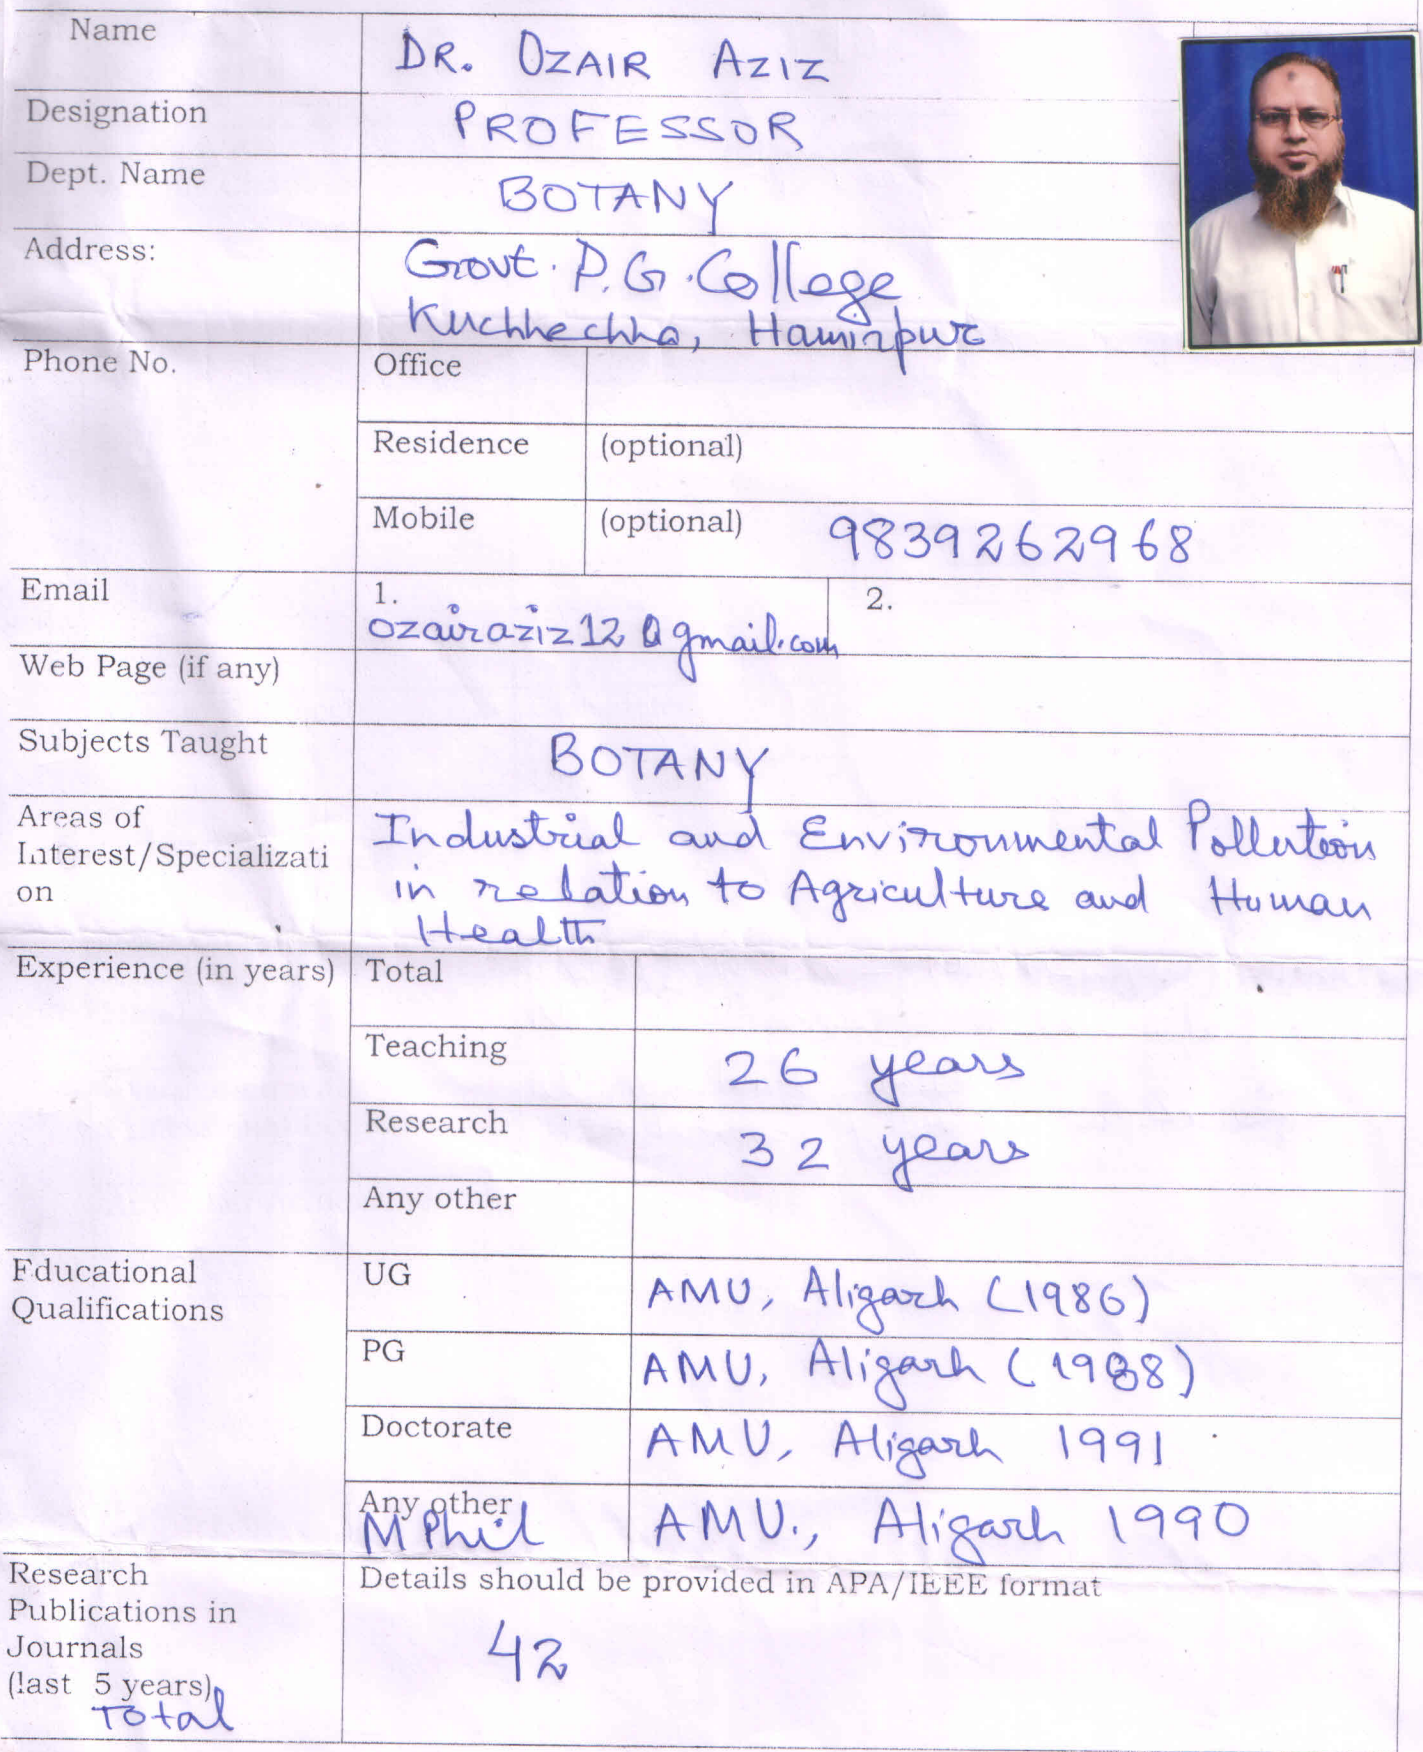 Name DR. OZAIR AZIZ
Designation PROFESSOR
Dept. Name BOTANY
Address: Govt. P.G. College
Kuchhechha, Hamirpur
Phone No. Office
Residence (optional)
Mobile (optional) 9839262968
Email 1. 2.
ozairaziz12@gmail.com
Web Page (if any)
Subjects Taught BOTANY
Areas of Interest/Specializati
on
Industrial and Environmental Pollution
in relation to Agriculture and Human
Health
Experience (in years) Total
Teaching 26 years
Research 32 years
Any other
Educational
Qualifications
UG AMU, Aligarh (1986)
PG AMU, Aligarh (1988)
Doctorate AMU, Aligarh 1991
Any other
MPhil AMU., Aligarh 1990
Research
Publications in
Journals
(last 5 years)
Total
Details should be provided in APA/IEEE format
42